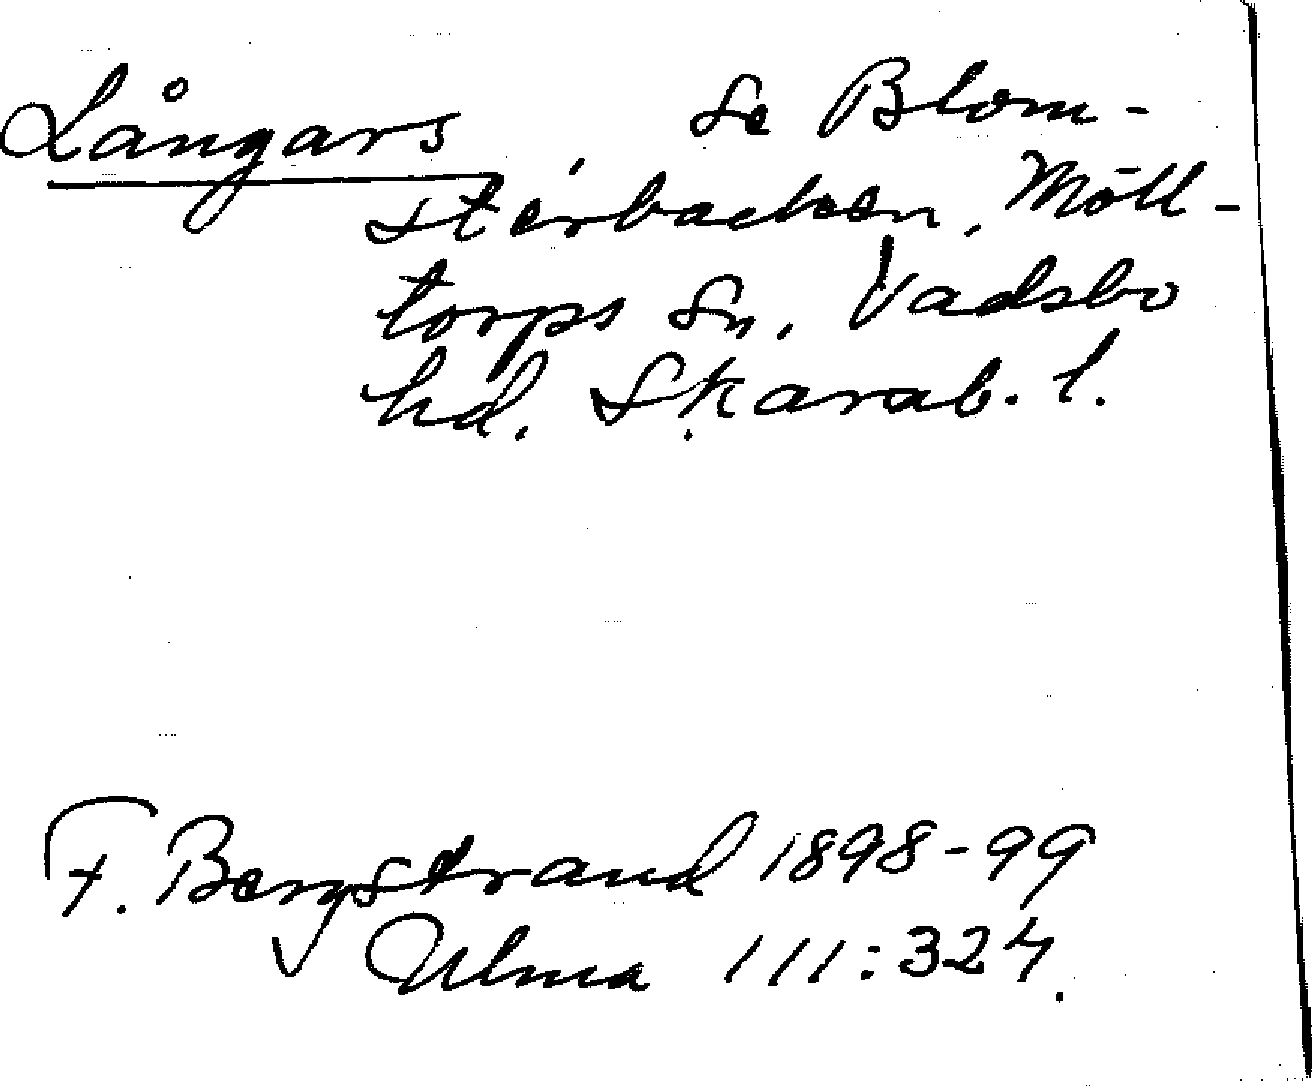 Långars, Se Blom-
sterbacken, Möll-
torps sn, Vadsbo
hd. Skarab. l.
F. Bergstrand 1898-99
Ulma 111:324.